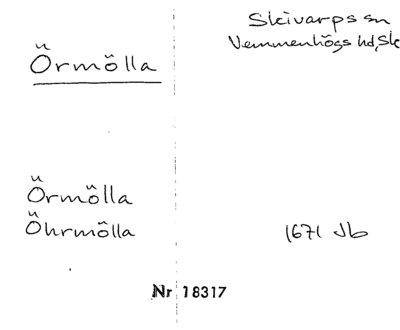 Örmölla
Skivarps sn
Vemmenhögs hd, Sk
Örmölla
Öhrmölla
1671 Jb
Nr 18317